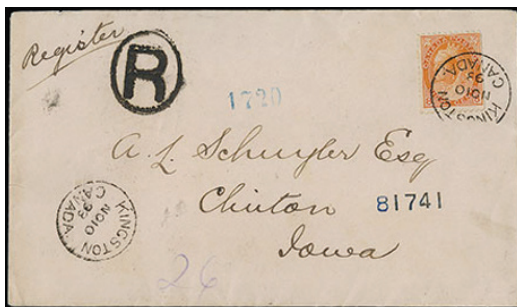 Register
R
1720
KINGSTON
NO 10
93
CANADA.
A. L. Schuyler Esq
Clinton
81741
Iowa
KINGSTON
NO 10
93
CANADA.
26